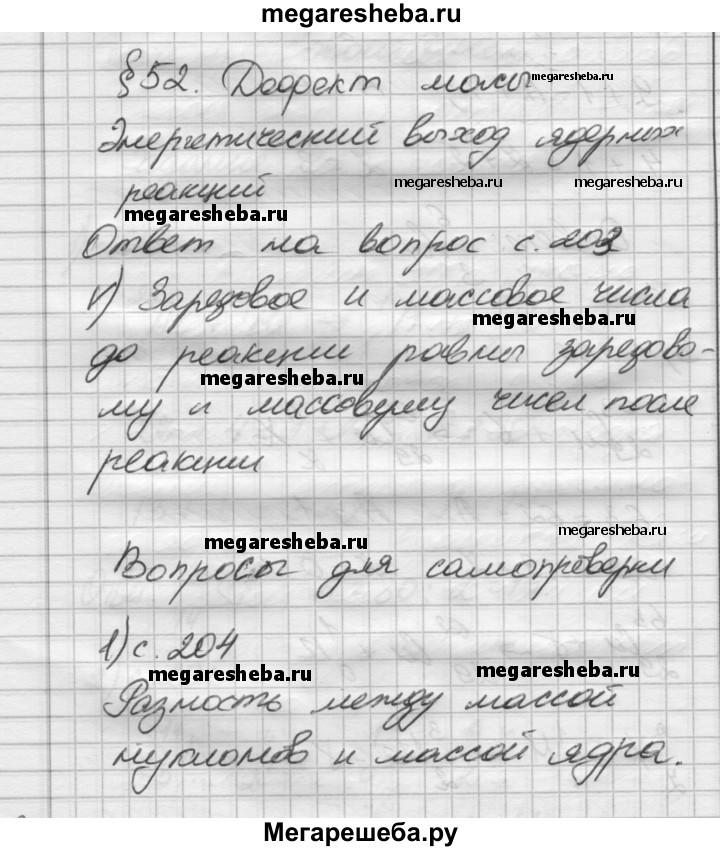 megaresheba.ru
§52. Дефект массы megaresheba.ru
Энергетический выход ядерных
реакций megaresheba.ru megaresheba.ru
megaresheba.ru
Ответ на вопрос с. 203
1) Зарядовое и массовое числа
megaresheba.ru
до реакции равны зарядово-
megaresheba.ru
му и массовому чисел после
реакции
megaresheba.ru
megaresheba.ru
Вопросы для самопроверки
1) с. 204
megaresheba.ru megaresheba.ru
Разность между массой
нуклонов и массой ядра.
Мегарешеба.ру